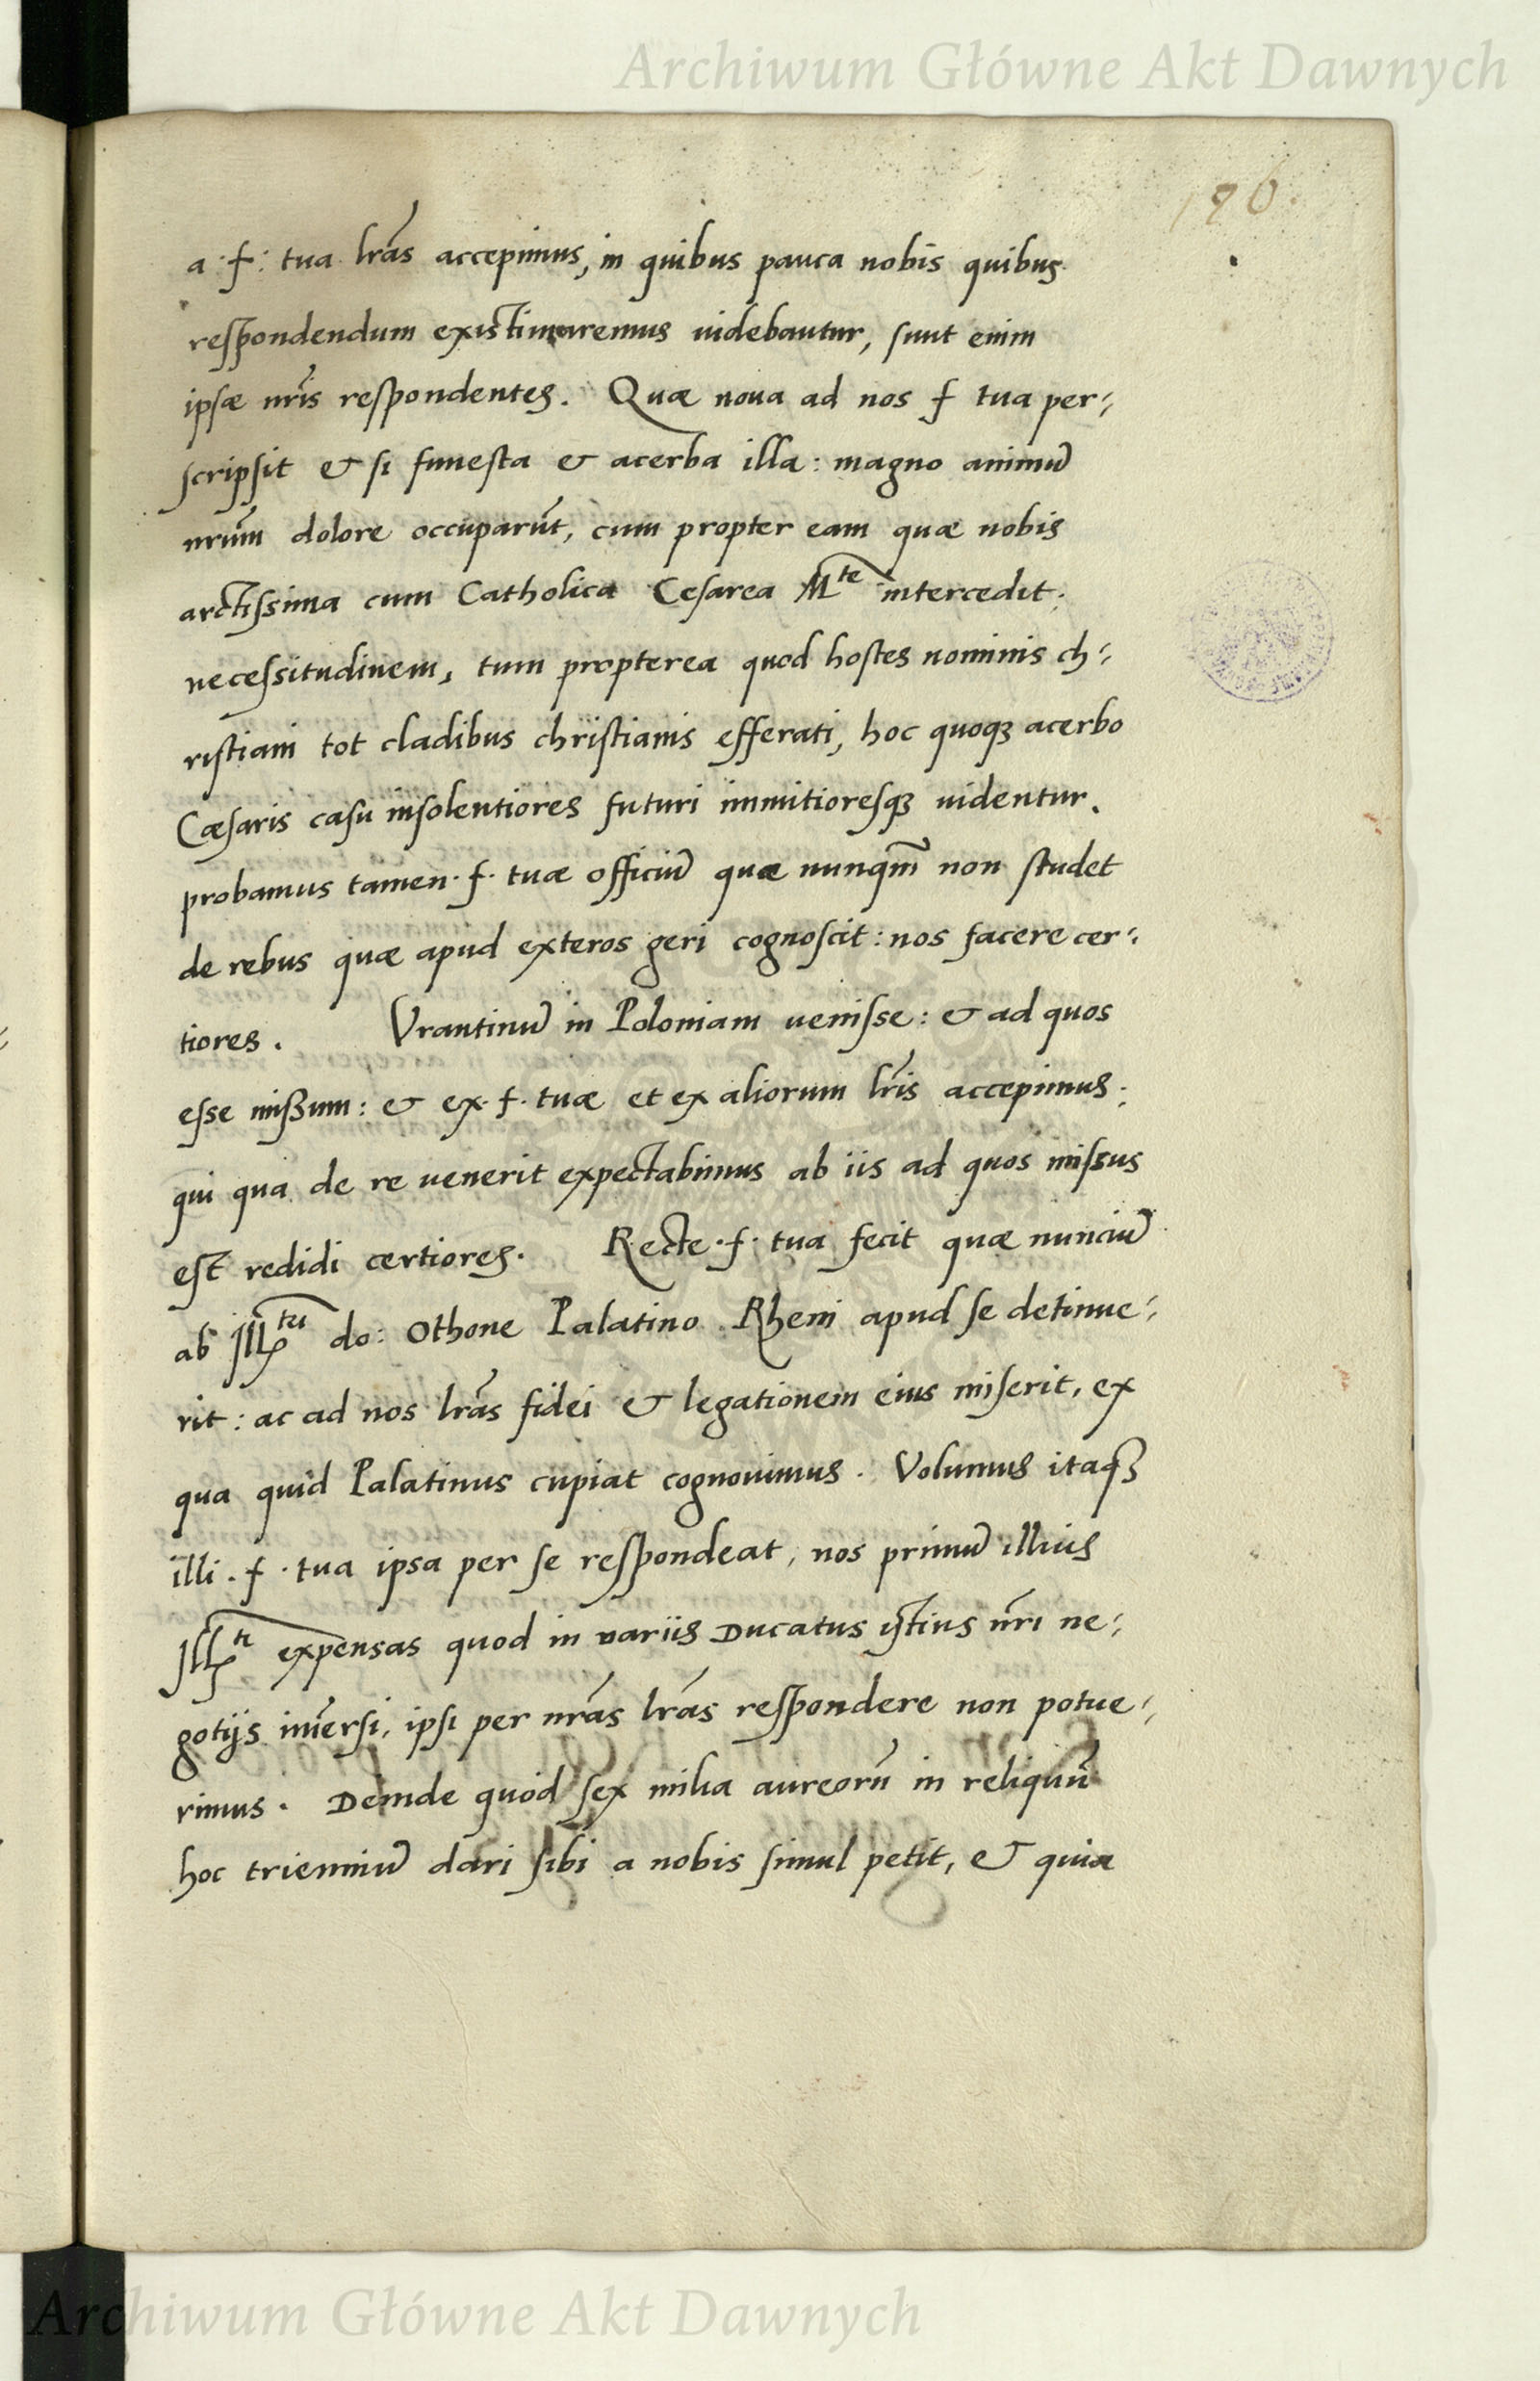 Archiwum Główne Akt Dawnych
196.
a. f: tua lrãs accepimus, in quibus pauca nobis quibus
respondendum existimaremus uidebantur, sunt enim
ipsæ nrĩs respondentes. Quæ noua ad nos f tua per-
scripsit & si funesta & acerba illa: magno animũ
nrũm dolore occuparũt, cum propter eam quæ nobis
arctissima cum Catholica Cesarea Mte intercedit
necessitudinem, tum propterea quod hostes nominis ch-
ristiani tot cladibus christianis efferati, hoc quoqꝫ acerbo
Cæsaris casu insolentiores futuri immitioresqꝫ uidentur.
probamus tamen. f. tuæ officiũ quæ nunqm̃ non studet
de rebus quæ apud exteros geri cognoscit: nos facere cer-
tiores. Vrantinũ in Poloniam uenisse: & ad quos
esse missum: & ex. f. tuæ et ex aliorum lrĩs accepimus:
qui qua de re uenerit expectabimus ab iis ad quos missus
est redidi certiores. Recte. f. tua fecit quæ nunciũ
ab Ill do: Othone Palatino Rheni apud se detinue-
rit: ac ad nos lrãs fidei & legationem eius miserit, ex
qua quid Palatinus cupiat cognouimus. Volumus itaqꝫ
illi. f. tua ipsa per se respondeat, nos primũ illius
expensas quod in uariis Ducatus istius nr̃i ne-
gotijs inṽersi, ipsi per nrãs lrãs respondere non potue-
rimus. Deinde quod sex milia aureorũ in reliquũ
hoc trienniũ dari sibi a nobis simul petit, & quia
Archiwum Główne Akt Dawnych